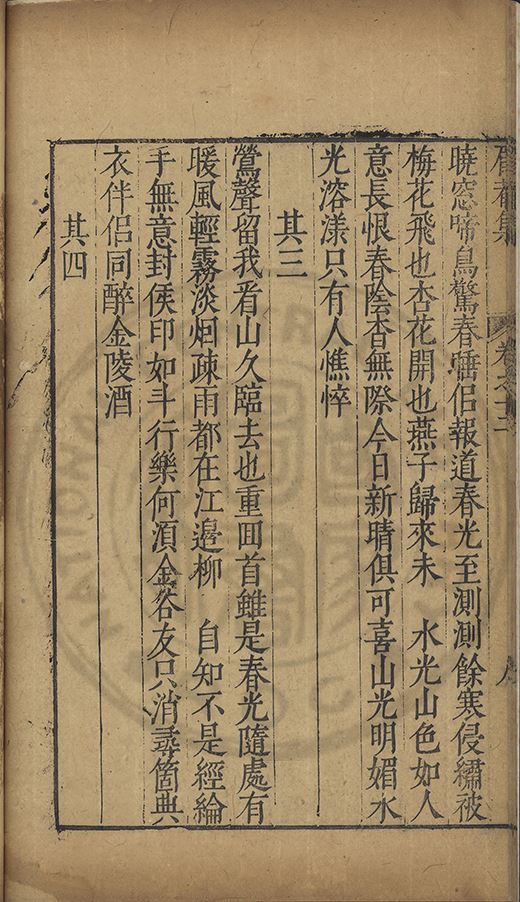 卷之十二
曉窓啼鳥驚春睡佀報道春光至測測餘寒侵繡被
梅花飛也杏花開也燕子歸來未　水光山色如人
意長恨春陰杳無際今日新晴俱可喜山光明媚水
光溶漾只有人憔悴
其三
鶯聲留我看山久臨去也重囬首雖是春光隨處有
暖風輕霧淡烟疎雨都在江邊柳　自知不是經綸
手無意封侯印如斗行樂何湏金谷友只消尋箇典
衣伴侶同醉金陵酒
其四